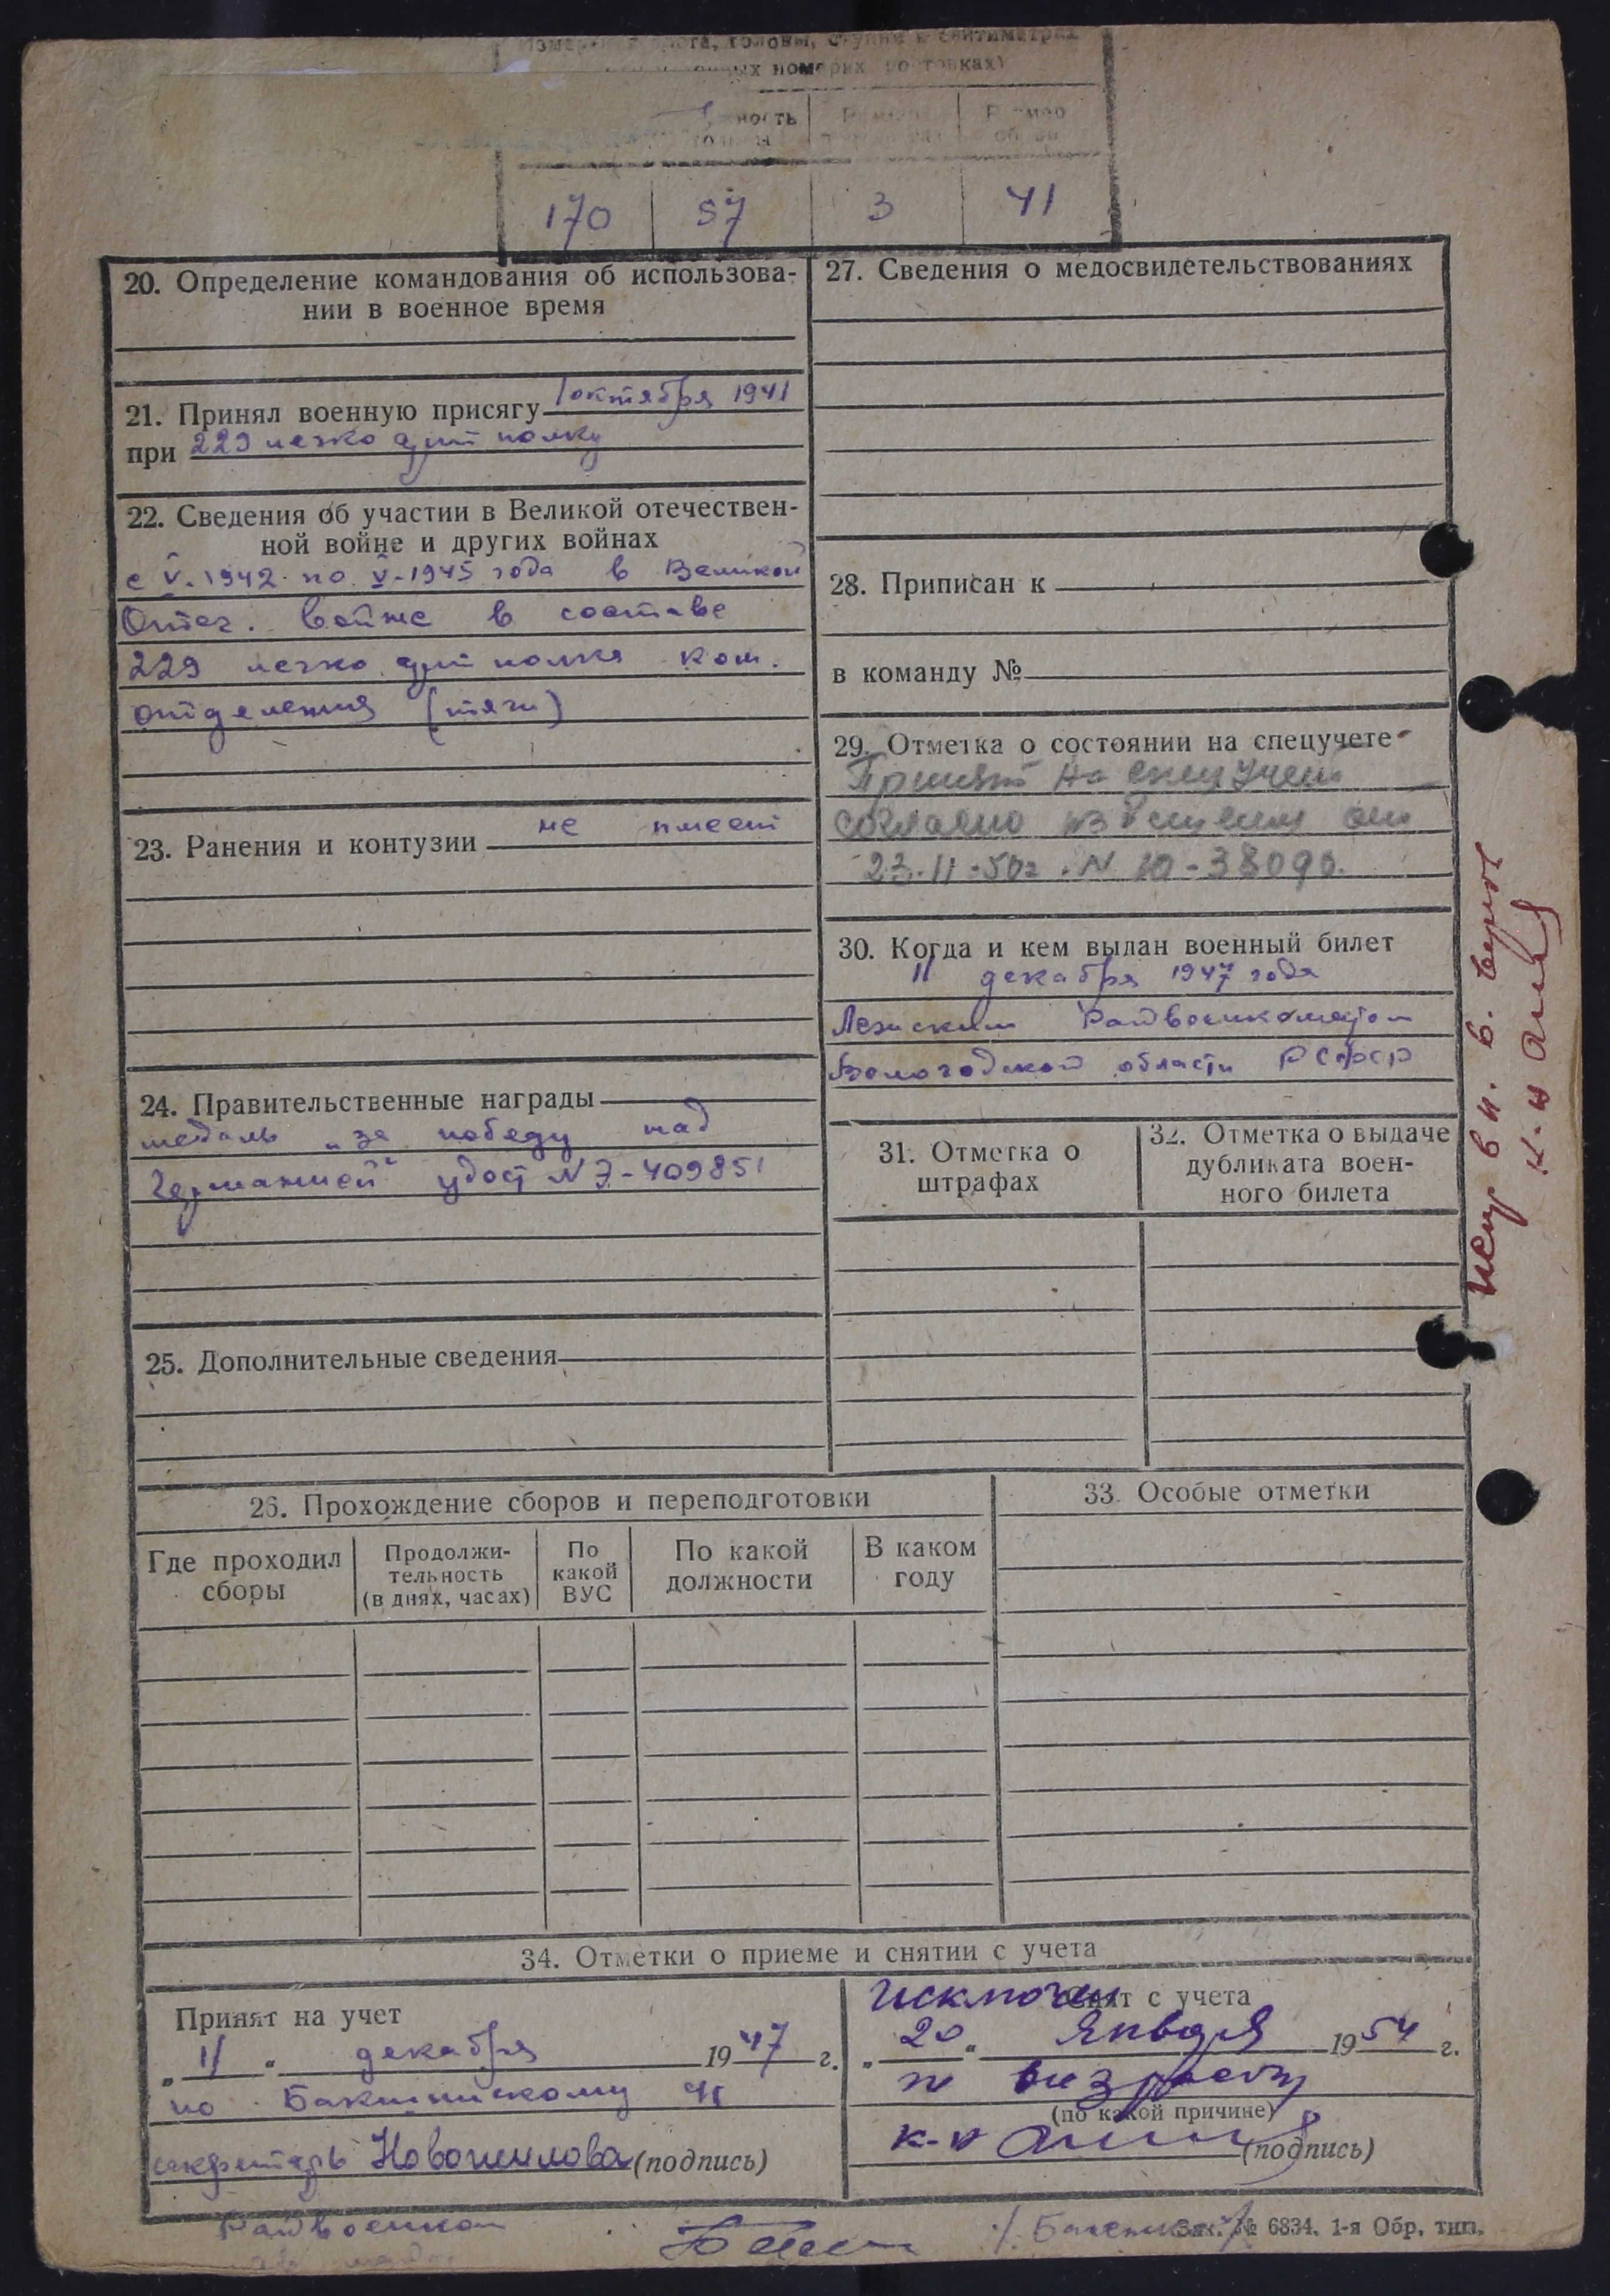 Измерения роста, головы, ступни в сантиметрах
170 57 3 41
20. Определение командования об использова-
нии в военное время
21. Принял военную присягу 1 октября 1941
при 229 легко арт полку
22. Сведения об участии в Великой отечествен-
ной войне и других войнах
с V-1942 по V-1945 года в Великой
Отеч. войне в составе
229 легко арт полка ком.
отделения (тяги)
23. Ранения и контузии не имеет
24. Правительственные награды
медаль „за победу над
Германией" удост № Э-409851
25. Дополнительные сведения
27. Сведения о медосвидетельствованиях
28. Приписан к
в команду №
29. Отметка о состоянии на спецучете
Принят на спец учет
согласно извещения от
23.11-50г. N 10-38090.
30. Когда и кем выдан военный билет
11 декабря 1947 года
Лежским Райвоенкоматом
Вологодской области РСФСР
31. Отметка о
штрафах
32. Отметка о выдаче
дубликата воен-
ного билета
26. Прохождение сборов и переподготовки
Где проходил
сборы
Продолжи-
тельность
(в днях, часах)
По
какой
ВУС
По какой
должности
В каком
году
33. Особые отметки
34. Отметки о приеме и снятии с учета
Принят на учет
„11" декабря 1947 г.
по
секретарь Новожилова (подпись)
Райвоенком
Исключен
Снят с учета
„20" Января 1954 г.
по возрасту
(по какой причине)
к-н (подпись)
Зак. № 6834. 1-я Обр. тип.